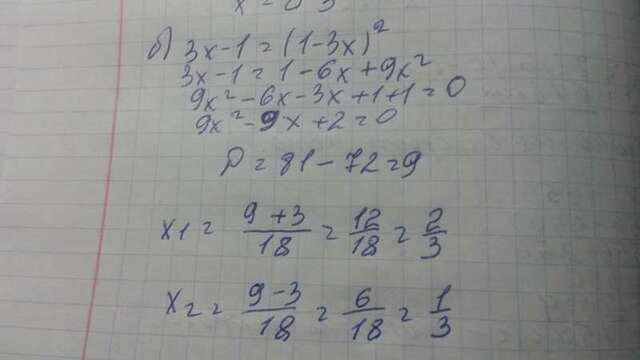 б) 3x-1=(1-3x)²
3x-1=1-6x+9x²
9x²-6x-3x+1+1=0
9x²-9x+2=0
D=81-72=9
x1 = (9+3)/18 = 12/18 = 2/3
x2 = (9-3)/18 = 6/18 = 1/3